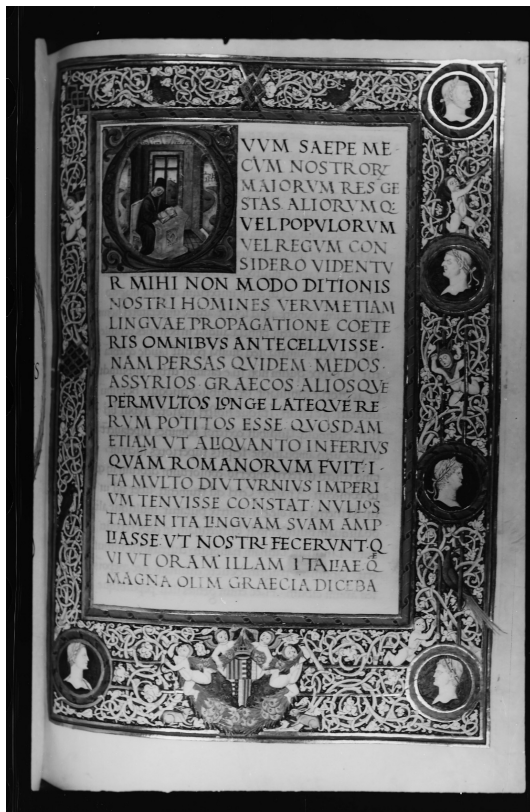 QVVM SAEPE ME
CVM NOSTROR
MAIORVM RES GE
STAS ALIORVMQ:
VEL POPVLORVM
VEL REGVM CON
SIDERO VIDENTV
R MIHI NON MODO DITIONIS
NOSTRI HOMINES VERVM ETIAM
LINGVAE PROPAGATIONE COETE
RIS OMNIBVS ANTECELLVISSE·
NAM PERSAS QVIDEM·MEDOS·
ASSYRIOS·GRAECOS ALIOSQVE
PERMVLTOS LONGE LATEQVE RE
RVM POTITOS ESSE QVOSDAM
ETIAM VT ALIQVANTO INFERIVS
QVAM ROMANORVM FVIT·I·
TA MVLTO DIVTVRNIVS IMPERI
VM TENVISSE CONSTAT·NVLLOS
TAMEN ITA LINGVAM SVAM AMP
LIASSE VT NOSTRI FECERVNT·Q
VI VT ORAM ILLAM ITALIAE Q
MAGNA OLIM GRAECIA DICEBA